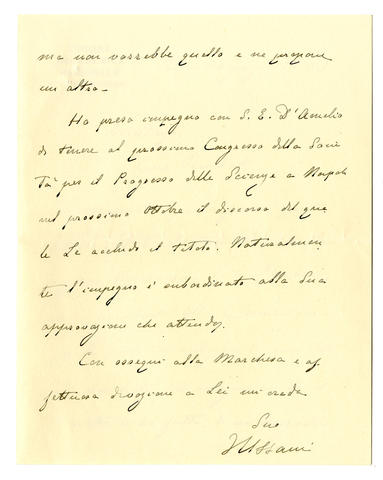 ma non vorrebbe quello e ne propone
un altro -
Ho preso impegno con S. E. D'Amelio
di tenere al prossimo Congresso della Socie
tà per il Progresso delle Scienze a Napoli
nel prossimo Ottobre il discorso del qua
le Le accludo il titolo. Naturalmen
te l'impegno è subordinato alla Sua
approvazione che attendo.
Con ossequi alla Marchesa e af
fettuosa devozione a Lei mi creda
Suo